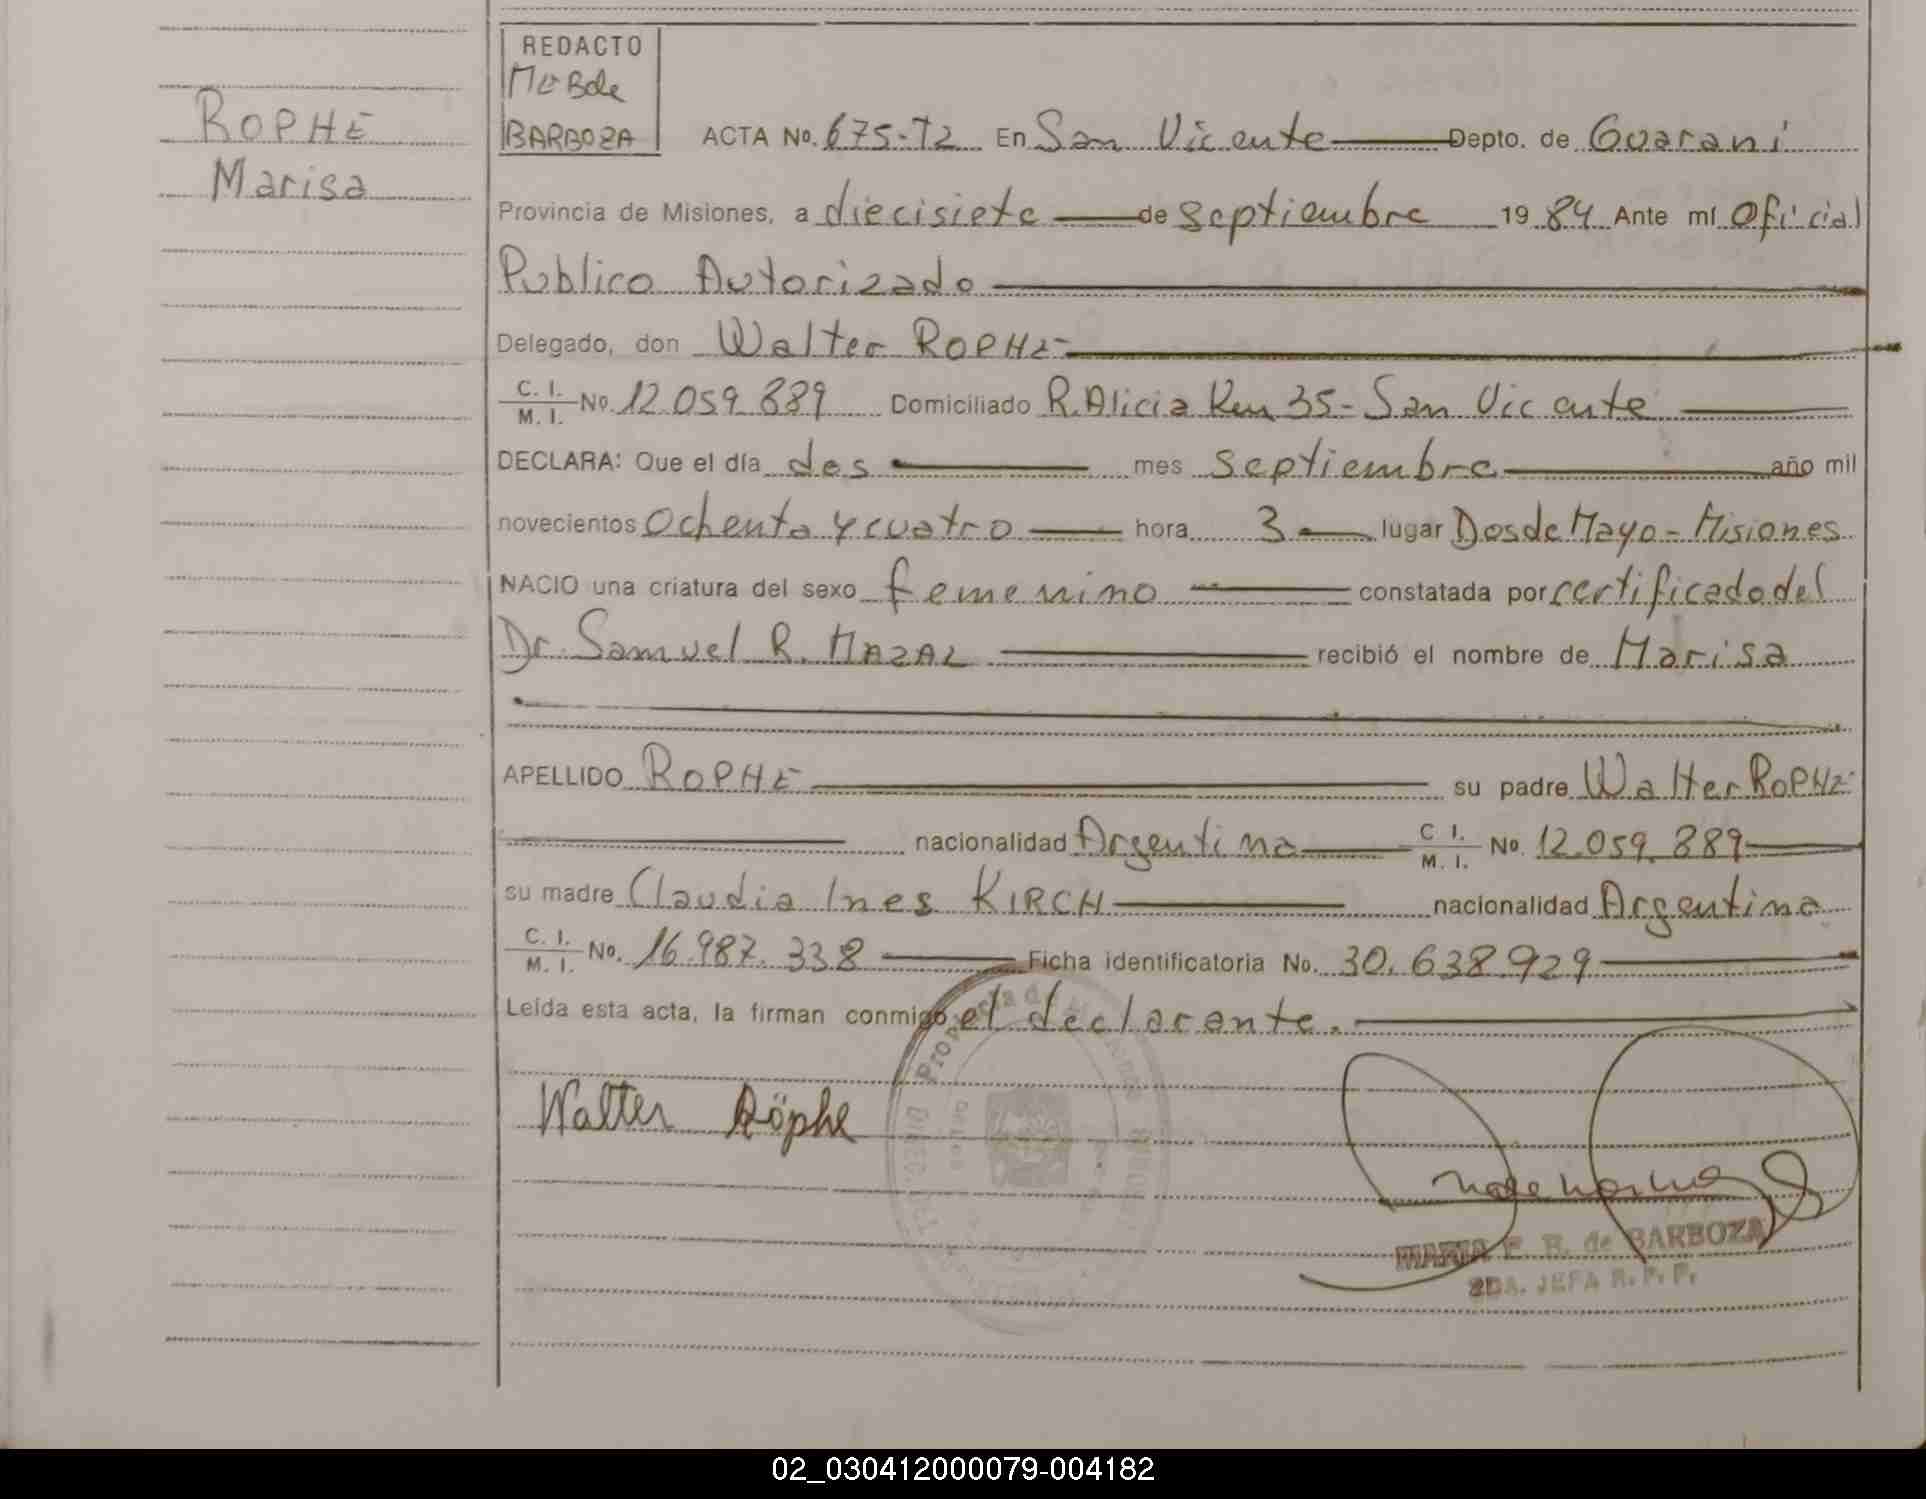 ROPHE
Marisa
REDACTO
Mª B de
BARBOZA
ACTA No. 675-T2 En San Vicente Depto. de Guarani
Provincia de Misiones, a diecisiete de septiembre 19 84 Ante mí Oficial
Publico Autorizado
Delegado, don Walter ROPHE
C. I. / M. I. No. 12.059.889 Domiciliado R. Alicia Km 35 - San Vicente
DECLARA: Que el día dos mes septiembre año mil
novecientos ochenta y cuatro hora 3 lugar Dos de Mayo - Misiones
NACIO una criatura del sexo femenino constatada por certificado del
Dr. Samuel R. MAZAL recibió el nombre de Marisa
APELLIDO ROPHE su padre Walter ROPHE
nacionalidad Argentina C I. / M. I. No. 12.059.889
su madre Claudia Ines KIRCH nacionalidad Argentina
C. I. / M. I. No. 16.987.338 Ficha identificatoria No. 30.638.929
Leída esta acta, la firman conmigo el declarante.
Walter Röphe
MARIA E. B. de BARBOZA
2DA. JEFA R. P. P.
02_030412000079-004182